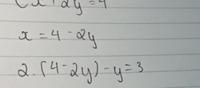 (x + 2y = 4
x = 4 - 2y
2. (4 - 2y) - y = 3